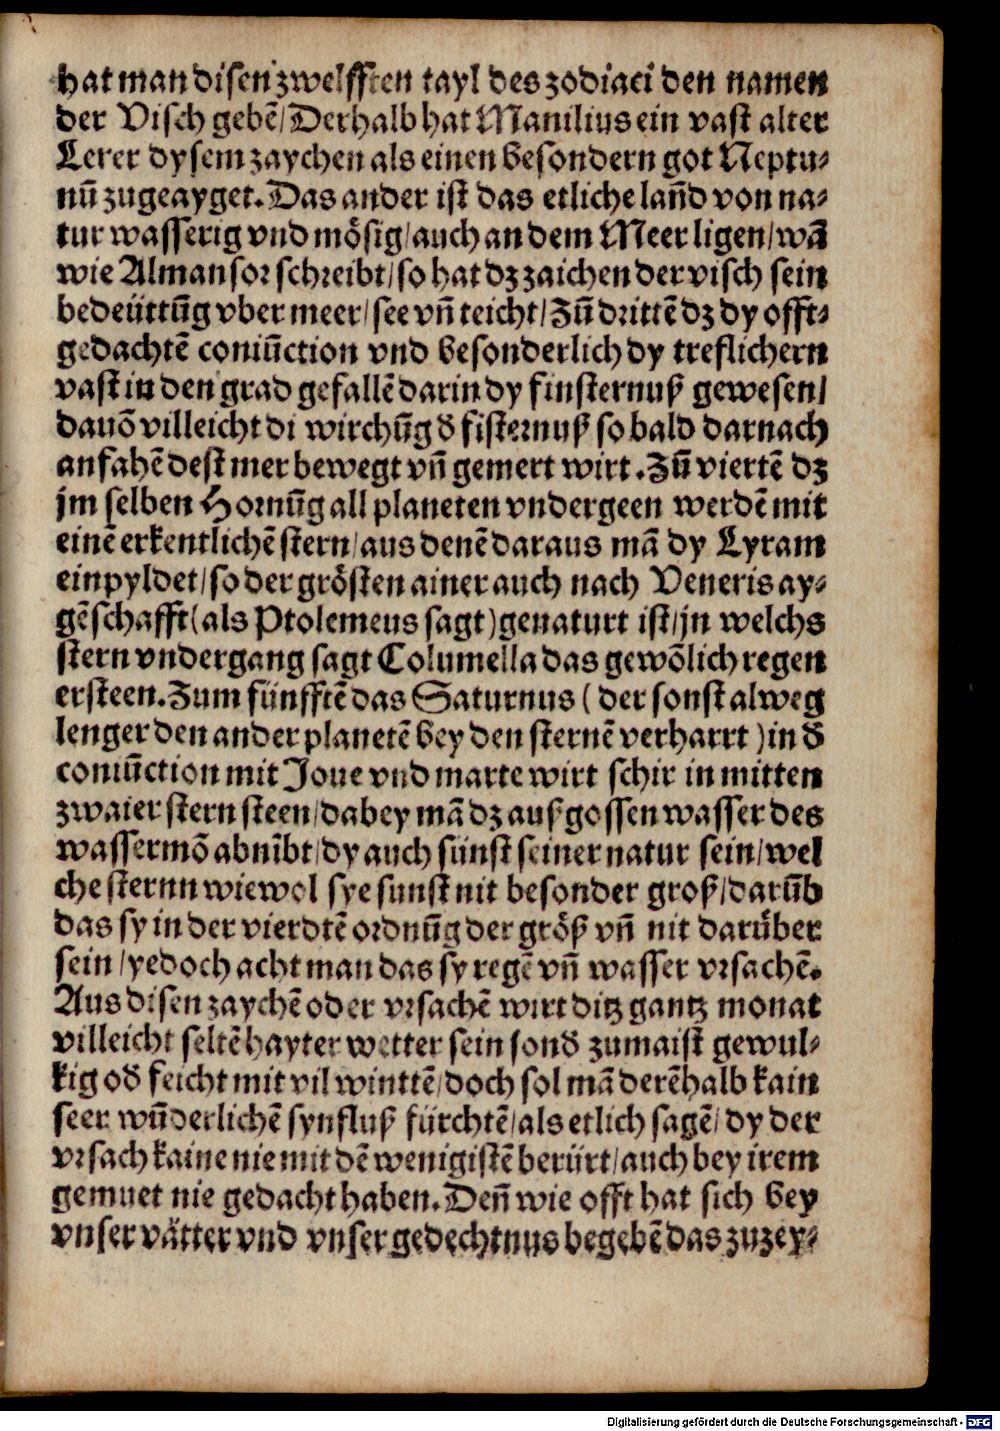 hat man disen zwelfften tayl des zodiaci den namen
der Visch gebē/Derhalb hat Manilius ein vast alter
Lerer dysem zaychen als einen besondern got Neptu⸗
nū zugeayget. Das ander ist das etliche lañd von na⸗
tur wasserig vnd mösig/auch an dem Meer ligen/wā
wie Almansor schreibt/so hat dz zaichen der visch sein
bedeüttūg vber meer/see vñ teicht/Zū drittē dz dy offt⸗
gedachtē coniūction vnd besonderlich dy treflichern
vast in den grad gefallē darin dy finsternuß gewesen/
dauō villeicht di wirchūg đ fisternuß so bald darnach
anfahē dest mer bewegt vñ gemert wirt. Zū viertē dz
jm selben Hornūg all planeten vndergeen werdē mit
einē erkentlichē stern/aus denē daraus mā dy Lyram
einpyldet/so der grösten ainer auch nach Veneris ay⸗
gēschafft(als Ptolemeus sagt)genaturt ist/jn welchs
stern vndergang sagt Columella das gewōlich regen
ersteen. Zum fünfftē das Saturnus ( der sonst alweg
lenger den ander planetē bey den sternē verharrt )in đ
coniūction mit Joue vnd marte wirt schir in mitten
zwaier stern steen/dabey mā dz auß gossen wasser des
wassermō abnībt/dy auch sünst seiner natur sein/wel
che sternn wiewol sye sunst nit besonder groß/darūb
das sy in der vierdtē ordnūg der größ vñ nit darüber
sein/yedoch acht man das sy regē vñ wasser vrsachē.
Aus disen zaychē oder vrsachē wirt ditz gantz monat
villeicht seltē hayter wetter sein sonđ zumaist gewul⸗
kig ođ feicht mit vil winttē/doch sol mā derēhalb kain
seer wūderlichē synfluß fürchtē/als etlich sagē/dy der
vrsach kaine nie mit dē wenigistē berürt/auch bey irem
gemuet nie gedacht haben. Deñ wie offt hat sich bey
vnser vätter vnd vnser gedechtnus begebē das zuzey⸗
Digitalisierung gefördert durch die Deutsche Forschungsgemeinschaft - DFG